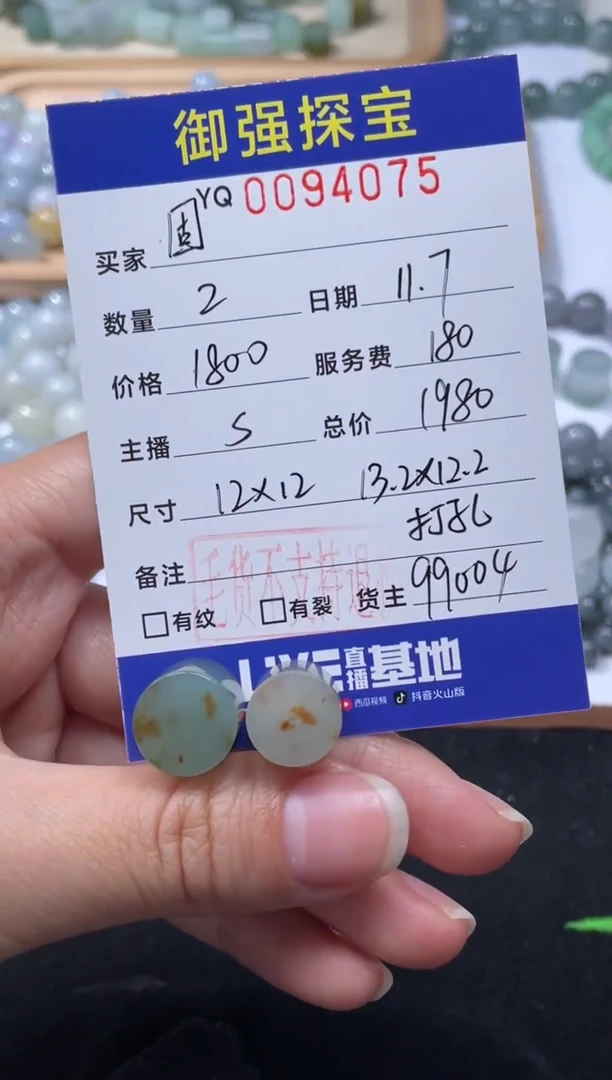 御强探宝
YQ 0094075
买家 固
数量 2 日期 11.7
价格 1800 服务费 180
主播 S 总价 1980
尺寸 12×12 13.2×12.2
打孔
备注 毛货不支持退
□有纹 □有裂 货主 99004
直播基地
西瓜视频 抖音火山版